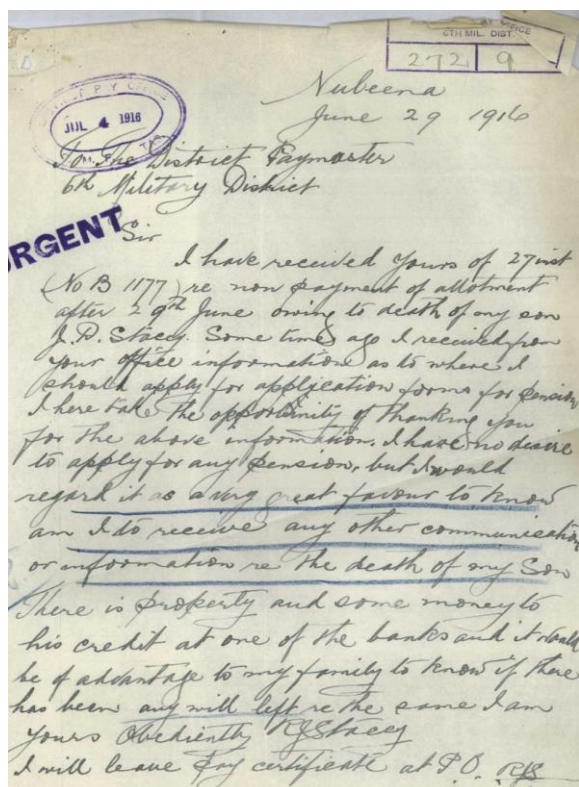 OFFICE
6TH MIL. DIST.
272 9
Nubeena
June 29 1916
JUL 4 1916
To The District Paymaster
6th Military District
URGENT
Sir
I have received yours of 27 inst
(No B 1177) re non payment of allotment
after 29th June owing to death of my son
J.D. Stacey. Some time ago I received from
your office information as to where I
should apply for application forms for pension
I here take the opportunity of thanking you
for the above information. I have no desire
to apply for any pension, but I would
regard it as a very great favour to know
am I to receive any other communication
or information re the death of my Son
There is property and some money to
his credit at one of the banks and it would
be of advantage to my family to know if there
has been any will left re the same I am
yours Obediently RJStacey
I will leave pay certificate at P.O. RJS